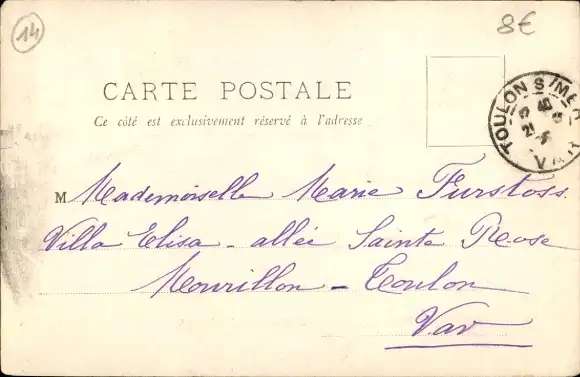 14
8€
CARTE POSTALE
Ce côté est exclusivement réservé à l'adresse
TOULON S/MER
VAR
M Mademoiselle Marie Furstoss
Villa Elisa - allée Sainte Rose
Mourillon - Toulon
Var